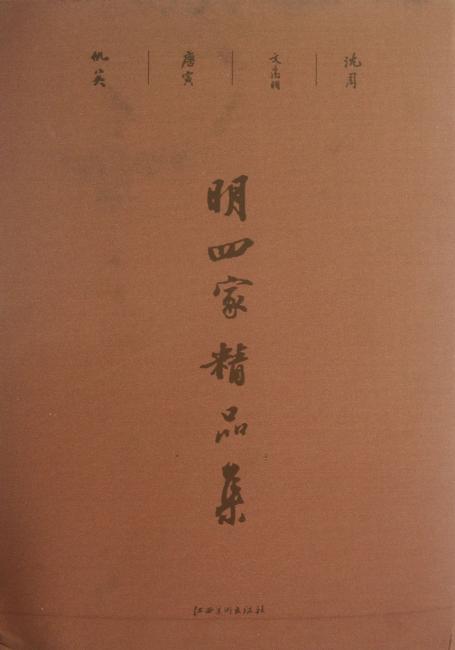 沈周
文徵明
唐寅
仇英
明四家精品集
江西美术出版社